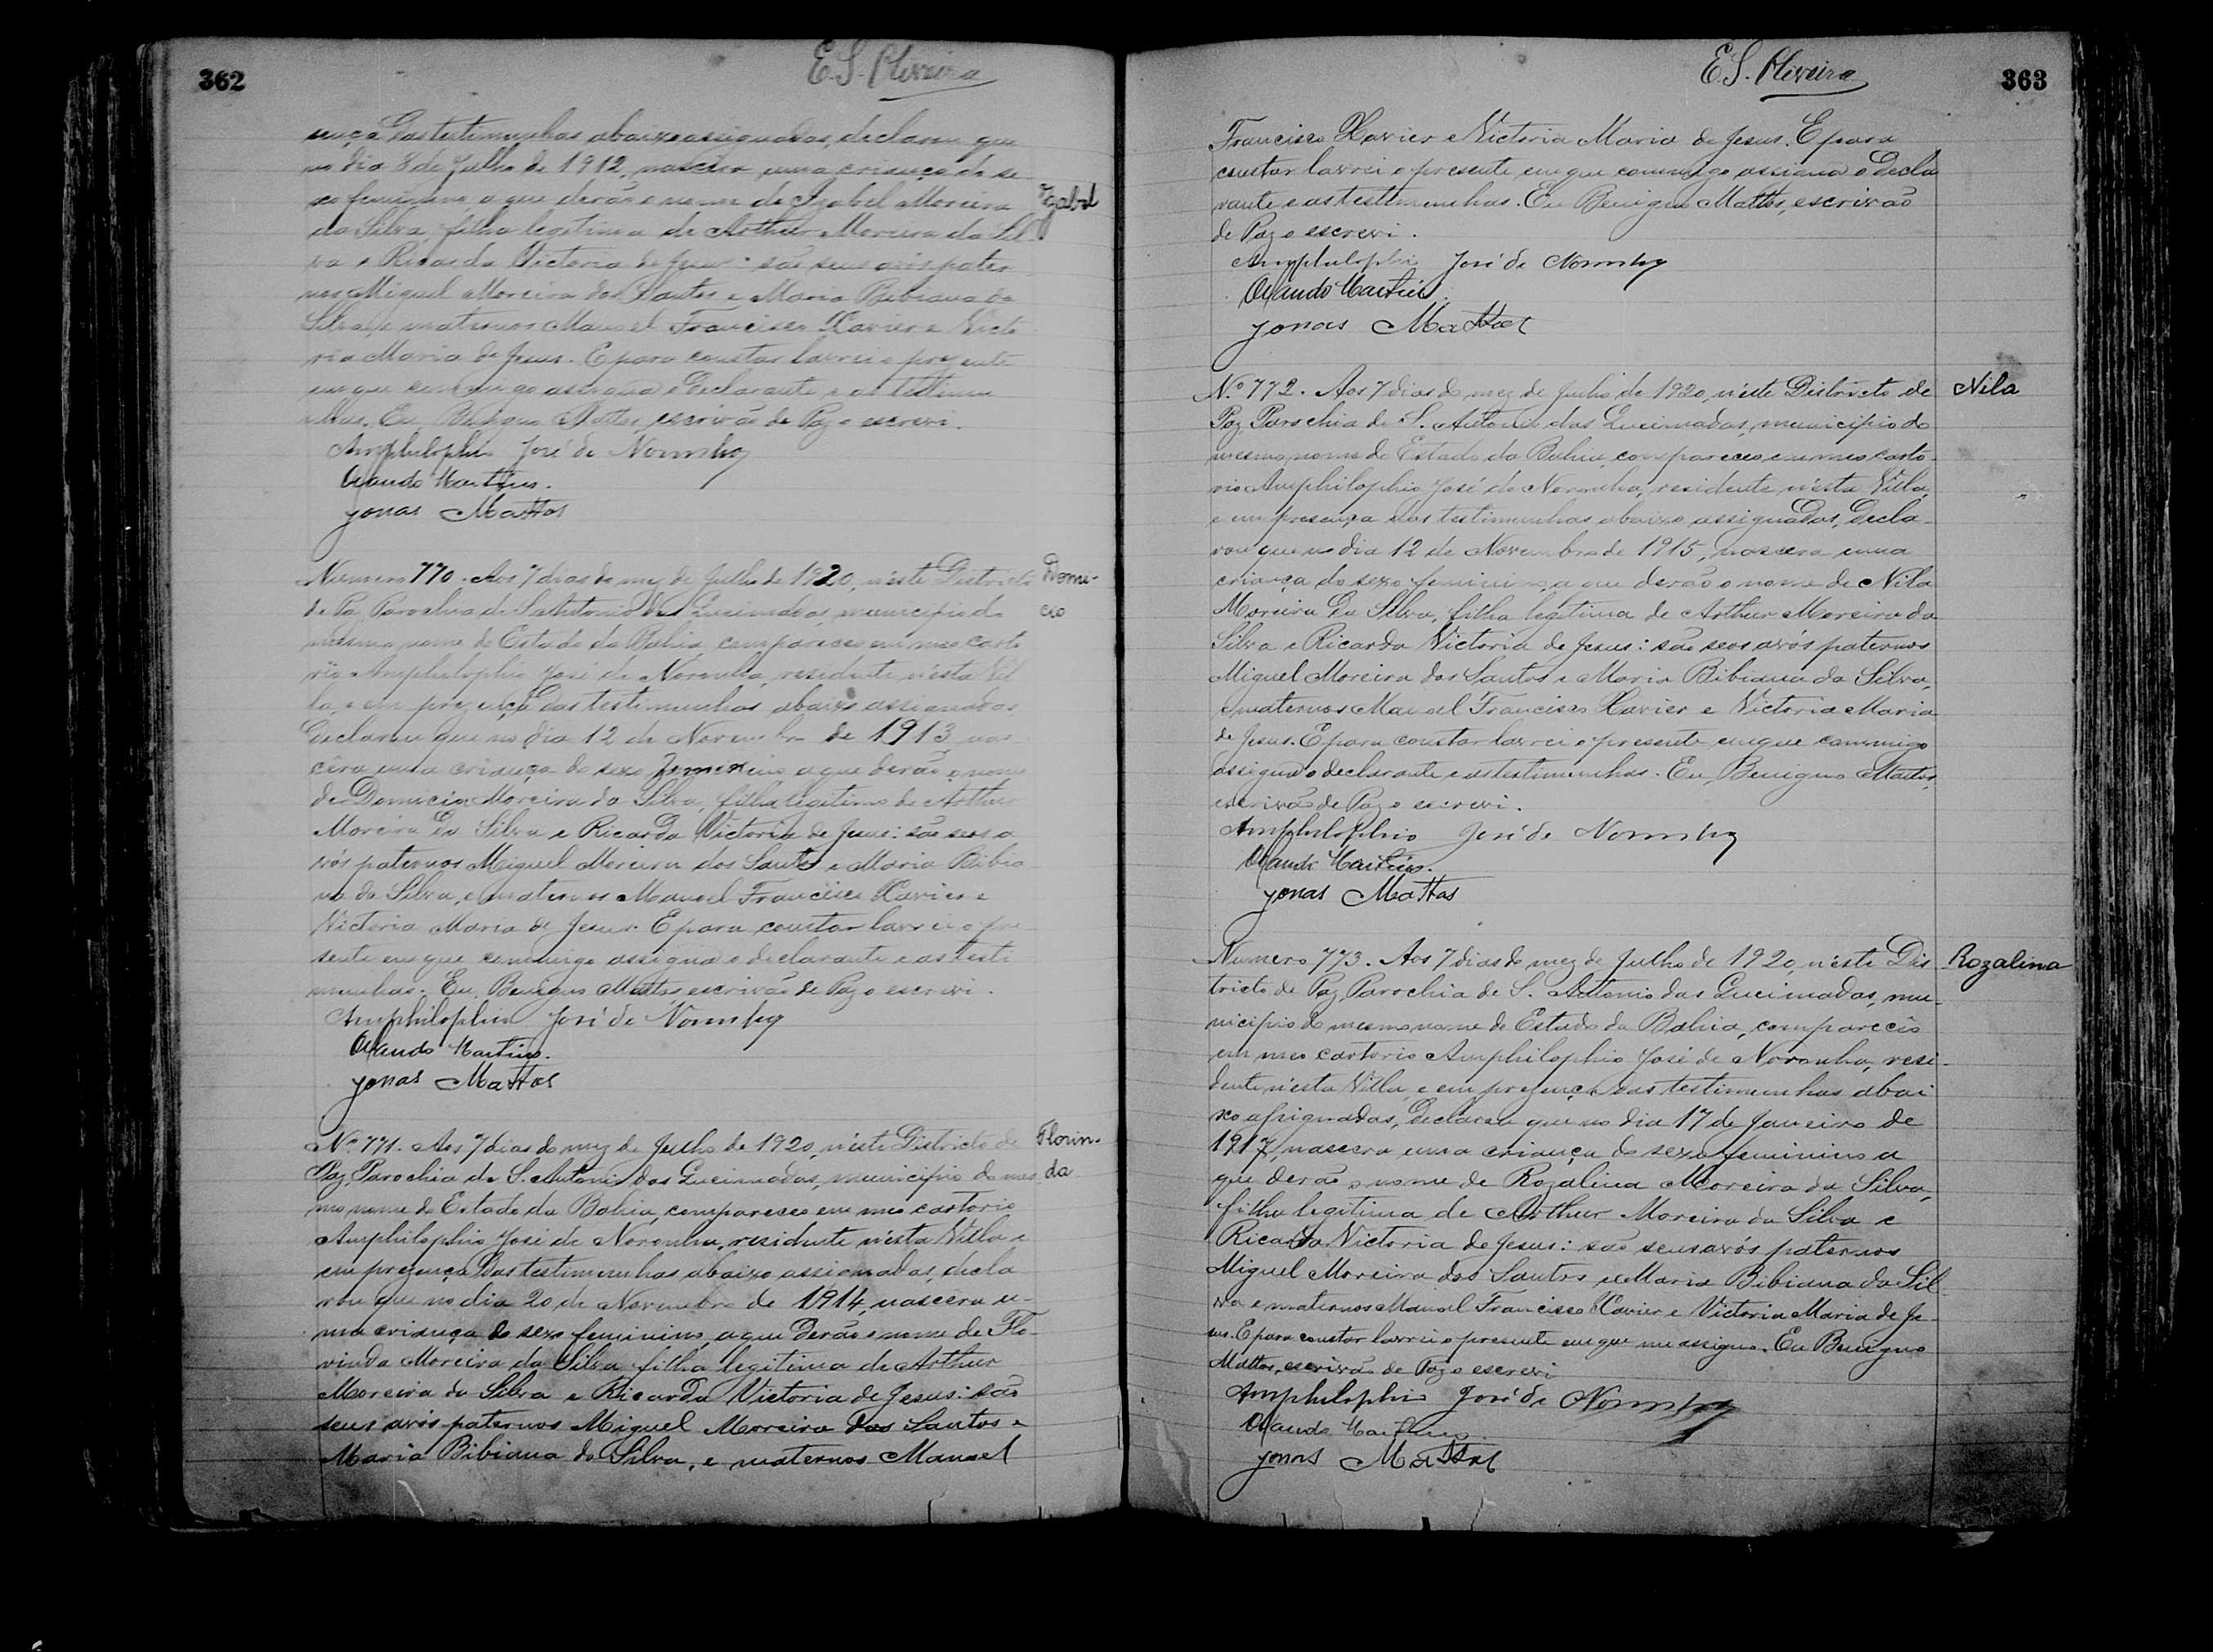 362
E. S. Oliveira
sença das testimunhas abaixo assignadas, declarou que
no dia 8 de Julho de 1912, nascera uma criança do se
xo feminino a que derão o nome de Izabel Moreira
Izabel
da Silva, filha legitima de Arthur Moreira da Sil-
va e Ricarda Victoria de Jesus: são seus avós pater
nos Miguel Moreira dos Santos e Maria Bibiana da
Silva, e maternos Manoel Francisco Xavier e Victo
ria Maria de Jesus. E para constar lavrei o prezente
em que commigo assigna o declarante e as testimu
nhas. Eu, Benigno Mattos, escrivão de Paz o escrevi.
Amphilophio José de Noronha
Orlando Martins.
Jonas Mattos
Numero 770. Aos 7 dias do mez de Julho de 1920, n'éste Districto
Domi-
cio
de Paz Parochia de S. Antonio das Queimadas, municipio do
mesmo nome do Estado da Bahia, compareceo em meo carto
rio Amphilophio José de Noronha, residente n'ésta Vil
la, e em prezença das testimunhas abaixo assignadas
declarou que no dia 12 de Novembro de 1913 nas
cera uma criança do sexo femenino a que derão o nome
de Domicia Moreira da Silva, filha legitima de Arthur
Moreira da Silva e Ricarda Victoria de Jesus: são seos a
vós paternos Miguel Moreira dos Santos e Maria Bibia
na da Silva, e maternos Manoel Francisco Xavier e
Victoria Maria de Jesus. E para constar lavrei o pre-
sente em que commigo assigna o declarante e as testi
munhas. Eu, Benigno Mattos, escrivão de Paz o escrevi.
Amphilophio José de Noronha
Orlando Martins.
Jonas Mattos
Nº 771. Aos 7 dias do mez de Julho de 1920, n'éste Districto de
Florin-
da
Paz, Parochia de S. Antonio das Queimadas, municipio do mes
mo nome do Estado da Bahia, compareceo em meo cartorio
Amphilophio José de Noronha, residente n'ésta Villa e
em prezença das testimunhas abaixo assignadas, decla
rou que no dia 20 de Novembro de 1914, nascera u-
ma criança do sexo feminino, a que derão o nome de Flo-
rinda Moreira da Silva filha legitima de Arthur
Moreira da Silva e Ricarda Victoria de Jesus: são
seus avós paternos Miguel Moreira dos Santos e
Maria Bibiana da Silva, e maternos Manoel
E. S. Oliveira
363
Francisco Xavier e Victoria Maria de Jesus. E para
constar lavrei o presente em que commigo assigna o decla
rante e as testimunhas. Eu Benigno Mattos, escrivão
de Paz o escrevi.
Amphilophio José de Noronha
Orlando Martins.
Jonas Mattos
Nº 772. Aos 7 dias do mez de Julho de 1920, n'éste Districto de
Nila
Paz, Parochia de S. Antonio das Queimadas, municipio do
mesmo nome do Estado da Bahia, compareceo em meo carto-
rio Amphilophio José de Noronha, residente n'ésta Villa,
e em presença das testimunhas abaixo assignadas, decla-
rou que no dia 12 de Novembro de 1915, nascera uma
criança do sexo feminino, a que derão o nome de Nila
Moreira da Silva, filha legitima de Arthur Moreira da
Silva e Ricarda Victoria de Jesus: são seos avós paternos
Miguel Moreira dos Santos e Maria Bibiana da Silva,
e maternos Manoel Francisco Xavier e Victoria Maria
de Jesus. E para constar lavrei o presente em que commigo
assigna o declarante e as testimunhas. Eu, Benigno Mattos,
escrivão de Paz o escrevi.
Amphilophio José de Noronha
Orlando Martins.
Jonas Mattos
Numero 773. Aos 7 dias do mez de Julho de 1920, n'éste Dis
Rozalina
tricto de Paz, Parochia de S. Antonio das Queimadas, mu-
nicipio do mesmo nome do Estado da Bahia, compareceo
em meo cartorio Amphilophio José de Noronha, resi-
dente n'ésta Villa, e em prezença das testimunhas abai
xo assignadas, declarou que no dia 17 de Janeiro de
1917, nascera uma criança do sexo feminino a
que derão o nome de Rozalina Moreira da Silva,
filha legitima de Arthur Moreira da Silva e
Ricarda Victoria de Jesus: são seus avós paternos
Miguel Moreira dos Santos e Maria Bibiana da Sil-
va e maternos Manoel Francisco Xavier e Victoria Maria de Je-
sus. E para constar lavrei o presente em que me assigno. Eu Benigno
Mattos, escrivão de Paz o escrevi
Amphilophio José de Noronha
Orlando Martins.
Jonas Mattos